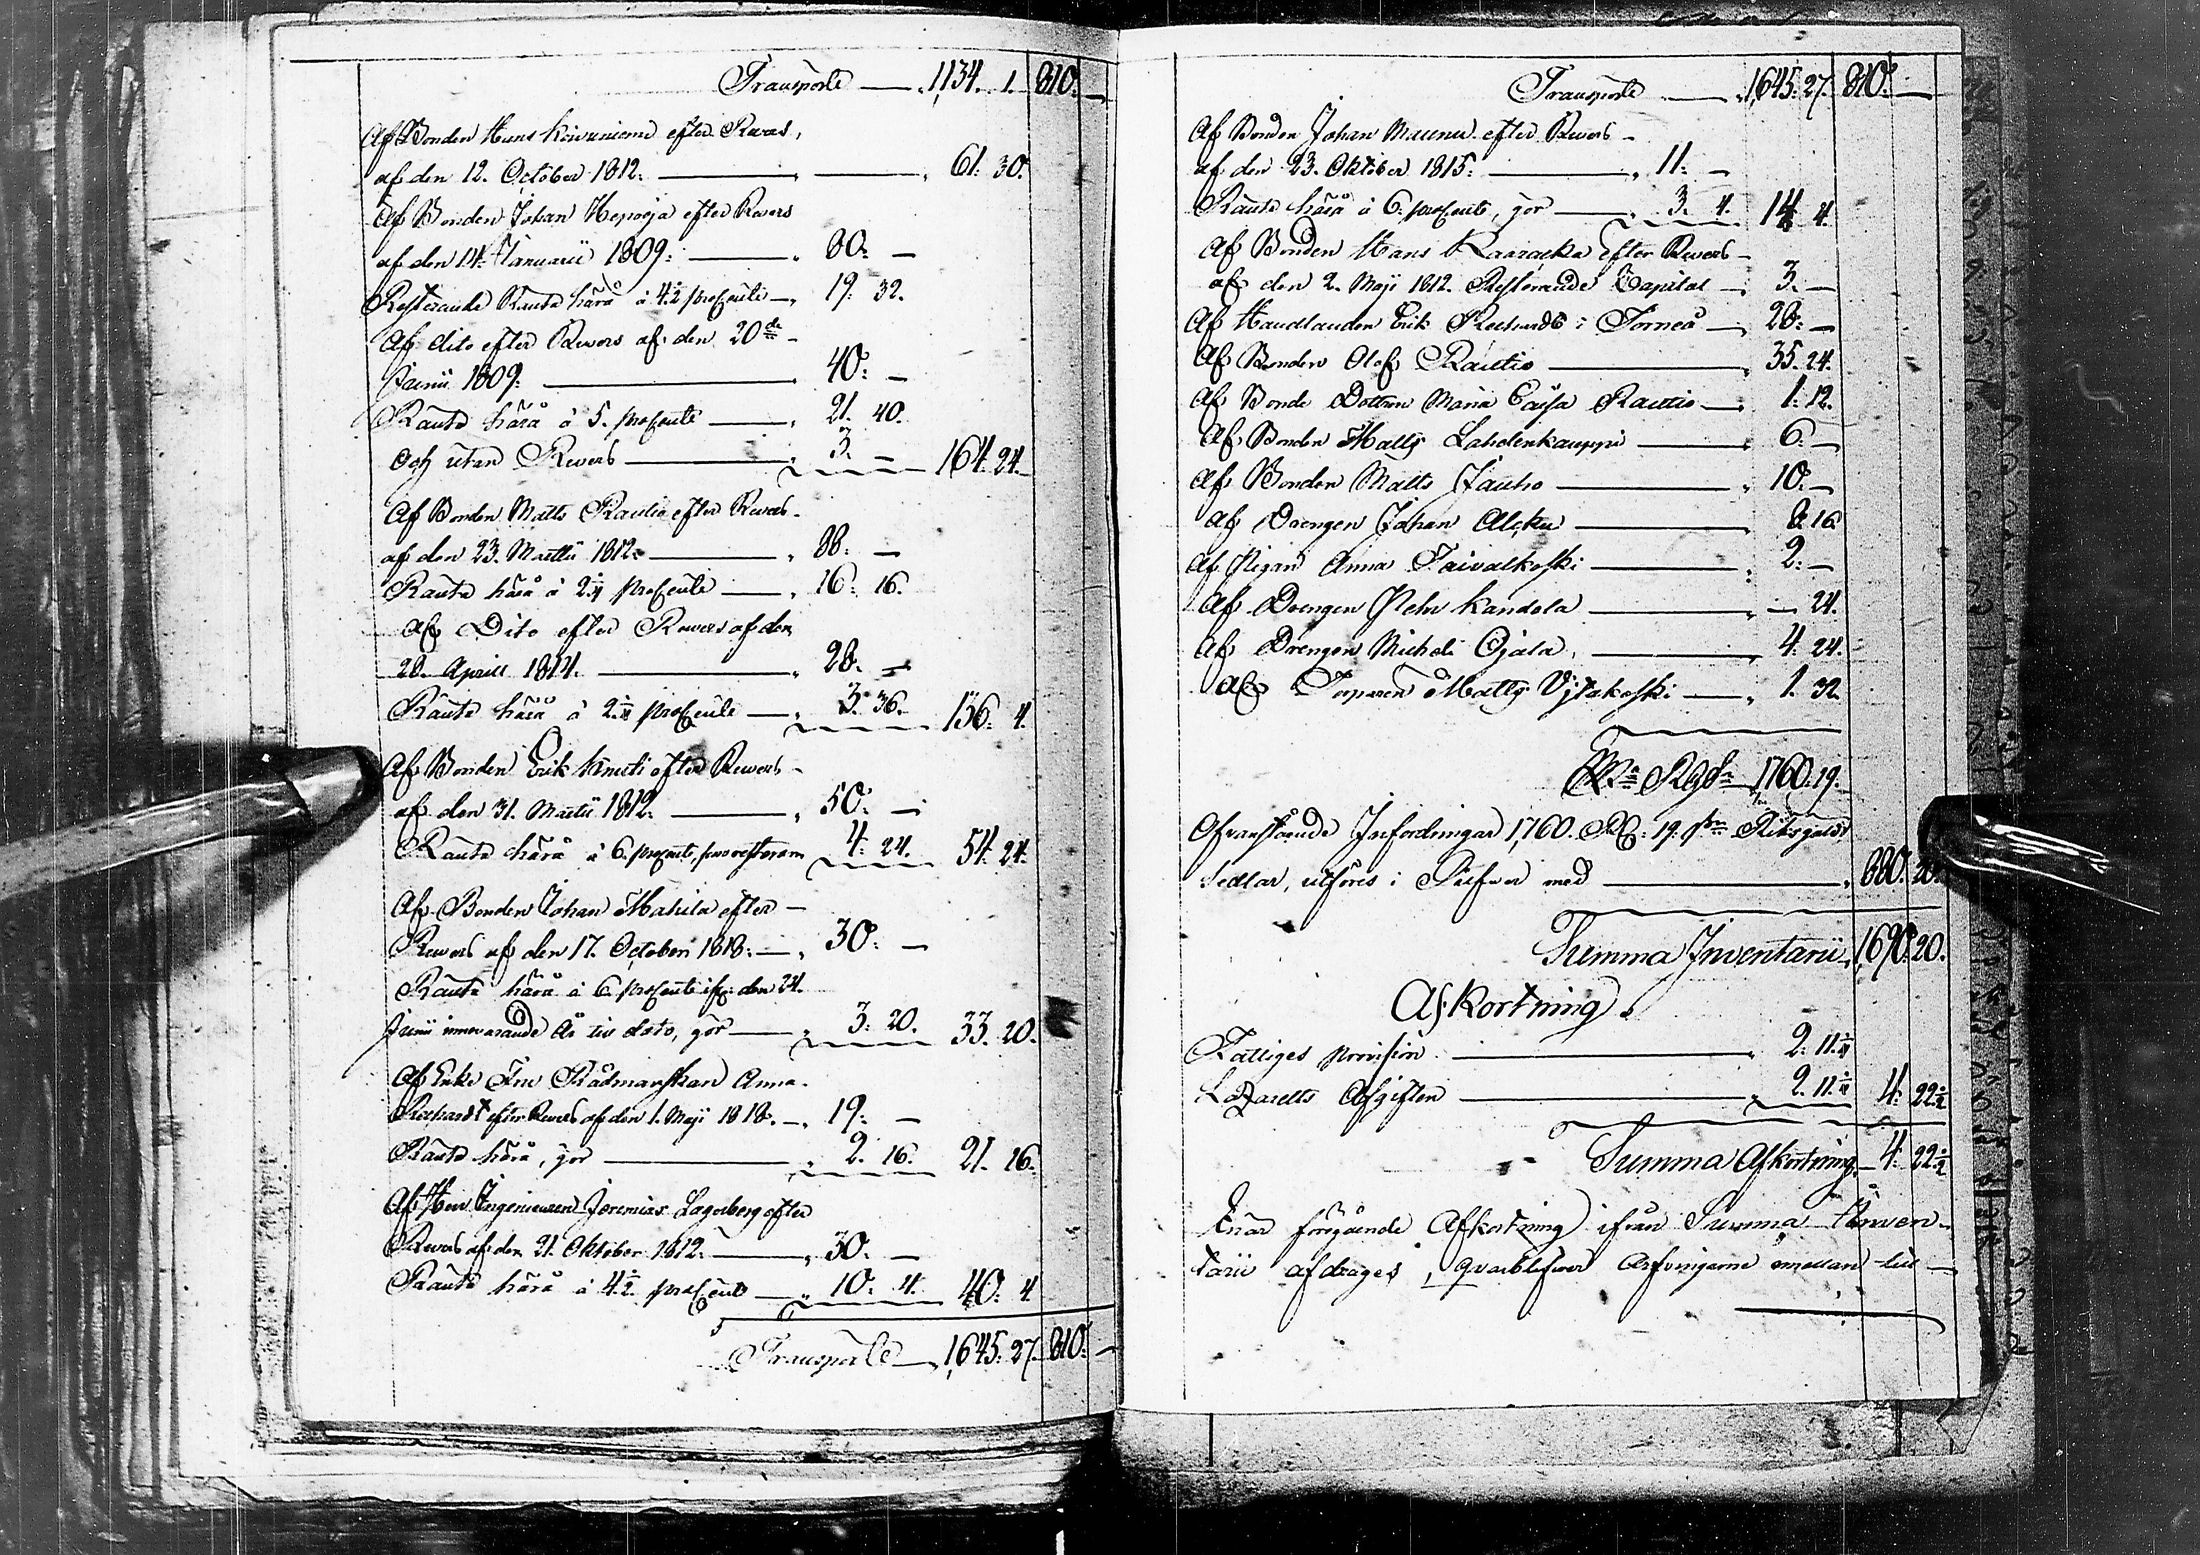 Transporte — 1134. 1. 810. —
Af Bonden Hans Koivuniemi efter Revers,
af den 12. October 1812. — 61. 30.
Af Bonden Johan Hepooja efter Revers
af den 14. Januarii 1809: — 80. —
Resterande Ränta härå à 4½ proCento — 19. 32.
Af dito efter Revers af den 20de
Junii 1809: — 40. —
Ränta härå à 5. proCento — 21. 40.
och utan Revers — 3. — 164. 24.
Af Bonden Matts Rautio efter Revers
af den 23. Martii 1812. — 88. —
Ränta härå à 2¼ proCento — 16. 16.
af Dito efter Revers af den
28. Aprill 1814. — 28. —
Ränta härå à 2¼ proCento — 3. 36. 136. 4.
Af Bonden Erik Knuti efter Revers
af den 31. Martii 1812. — 50. —
Ränta härå à 6. proCento, som restera 4. 24. 54. 24.
Af Bonden Johan Matila efter
Revers af den 17. October 1818. — 30. —
Ränta härå à 6. proCento ifrå den 24.
Junii innevarande År til dato, gör — 3. 20. 33. 20.
Af Enke Fru Rådmanskan Anna
Richardt efter Revers af den 1. Maji 1818. — 19. —
Ränta härå, gör — 2. 16. 21. 16.
Af Herr Ingenieuren Jeremias Lagerberg efter
Revers af den 21. Oktober 1812. — 30. —
Ränta härå à 4½ proCento — 10. 4. 40. 4.
Transporte — 1,645. 27. 810. —
Transporte — 1,645. 27. 810. —
Af Bonden Johan Maunu efter Revers
af den 23. Oktober 1815. — 11. —
Ränta härå à 6. proCento, gör — 3. 4. 14. 4.
Af Bonden Hans Kaaracka efter Revers
af den 2. Maji 1812. Resterande Capital — 3. —
Af Handlanden Erik Richardt i Torneå — 28. —
Af Bonden Olof Rautio — 35. 24.
Af Bonde Dottren Maria Caisa Rautio — 1. 12.
Af Bonden Matts Lahdenkauppi — 6. —
Af Bonden Matts Jauho — 10. —
Af Drengen Johan Alcku — 8. 16
Af Pigan Anna Taivalkoski — 2. —
Af Drengen Pehr Kandola — — 24.
Af Drengen Michel Ojala, — 4. 24.
af Torparen Matts Vjtakoski — 1. 32
Sma Rgds 1760. 19.
Ofvanstående Infordringar 1,760. RD. 19. s Riksgäld
Sedlar, utföres i Silfver med — 880. 20.
Summa Inventarii 1,690. 20.
Afkortning.
Fattiges provision — 2. 11¼
Lazaretts Afgiften — 2. 11¼ 4. 22½
Summa Afkortning — 4. 22½
Enär föregående Afkortning ifrån Summa Inven-
tarii afdrages, qvarblifver Arfvingarne emellan til